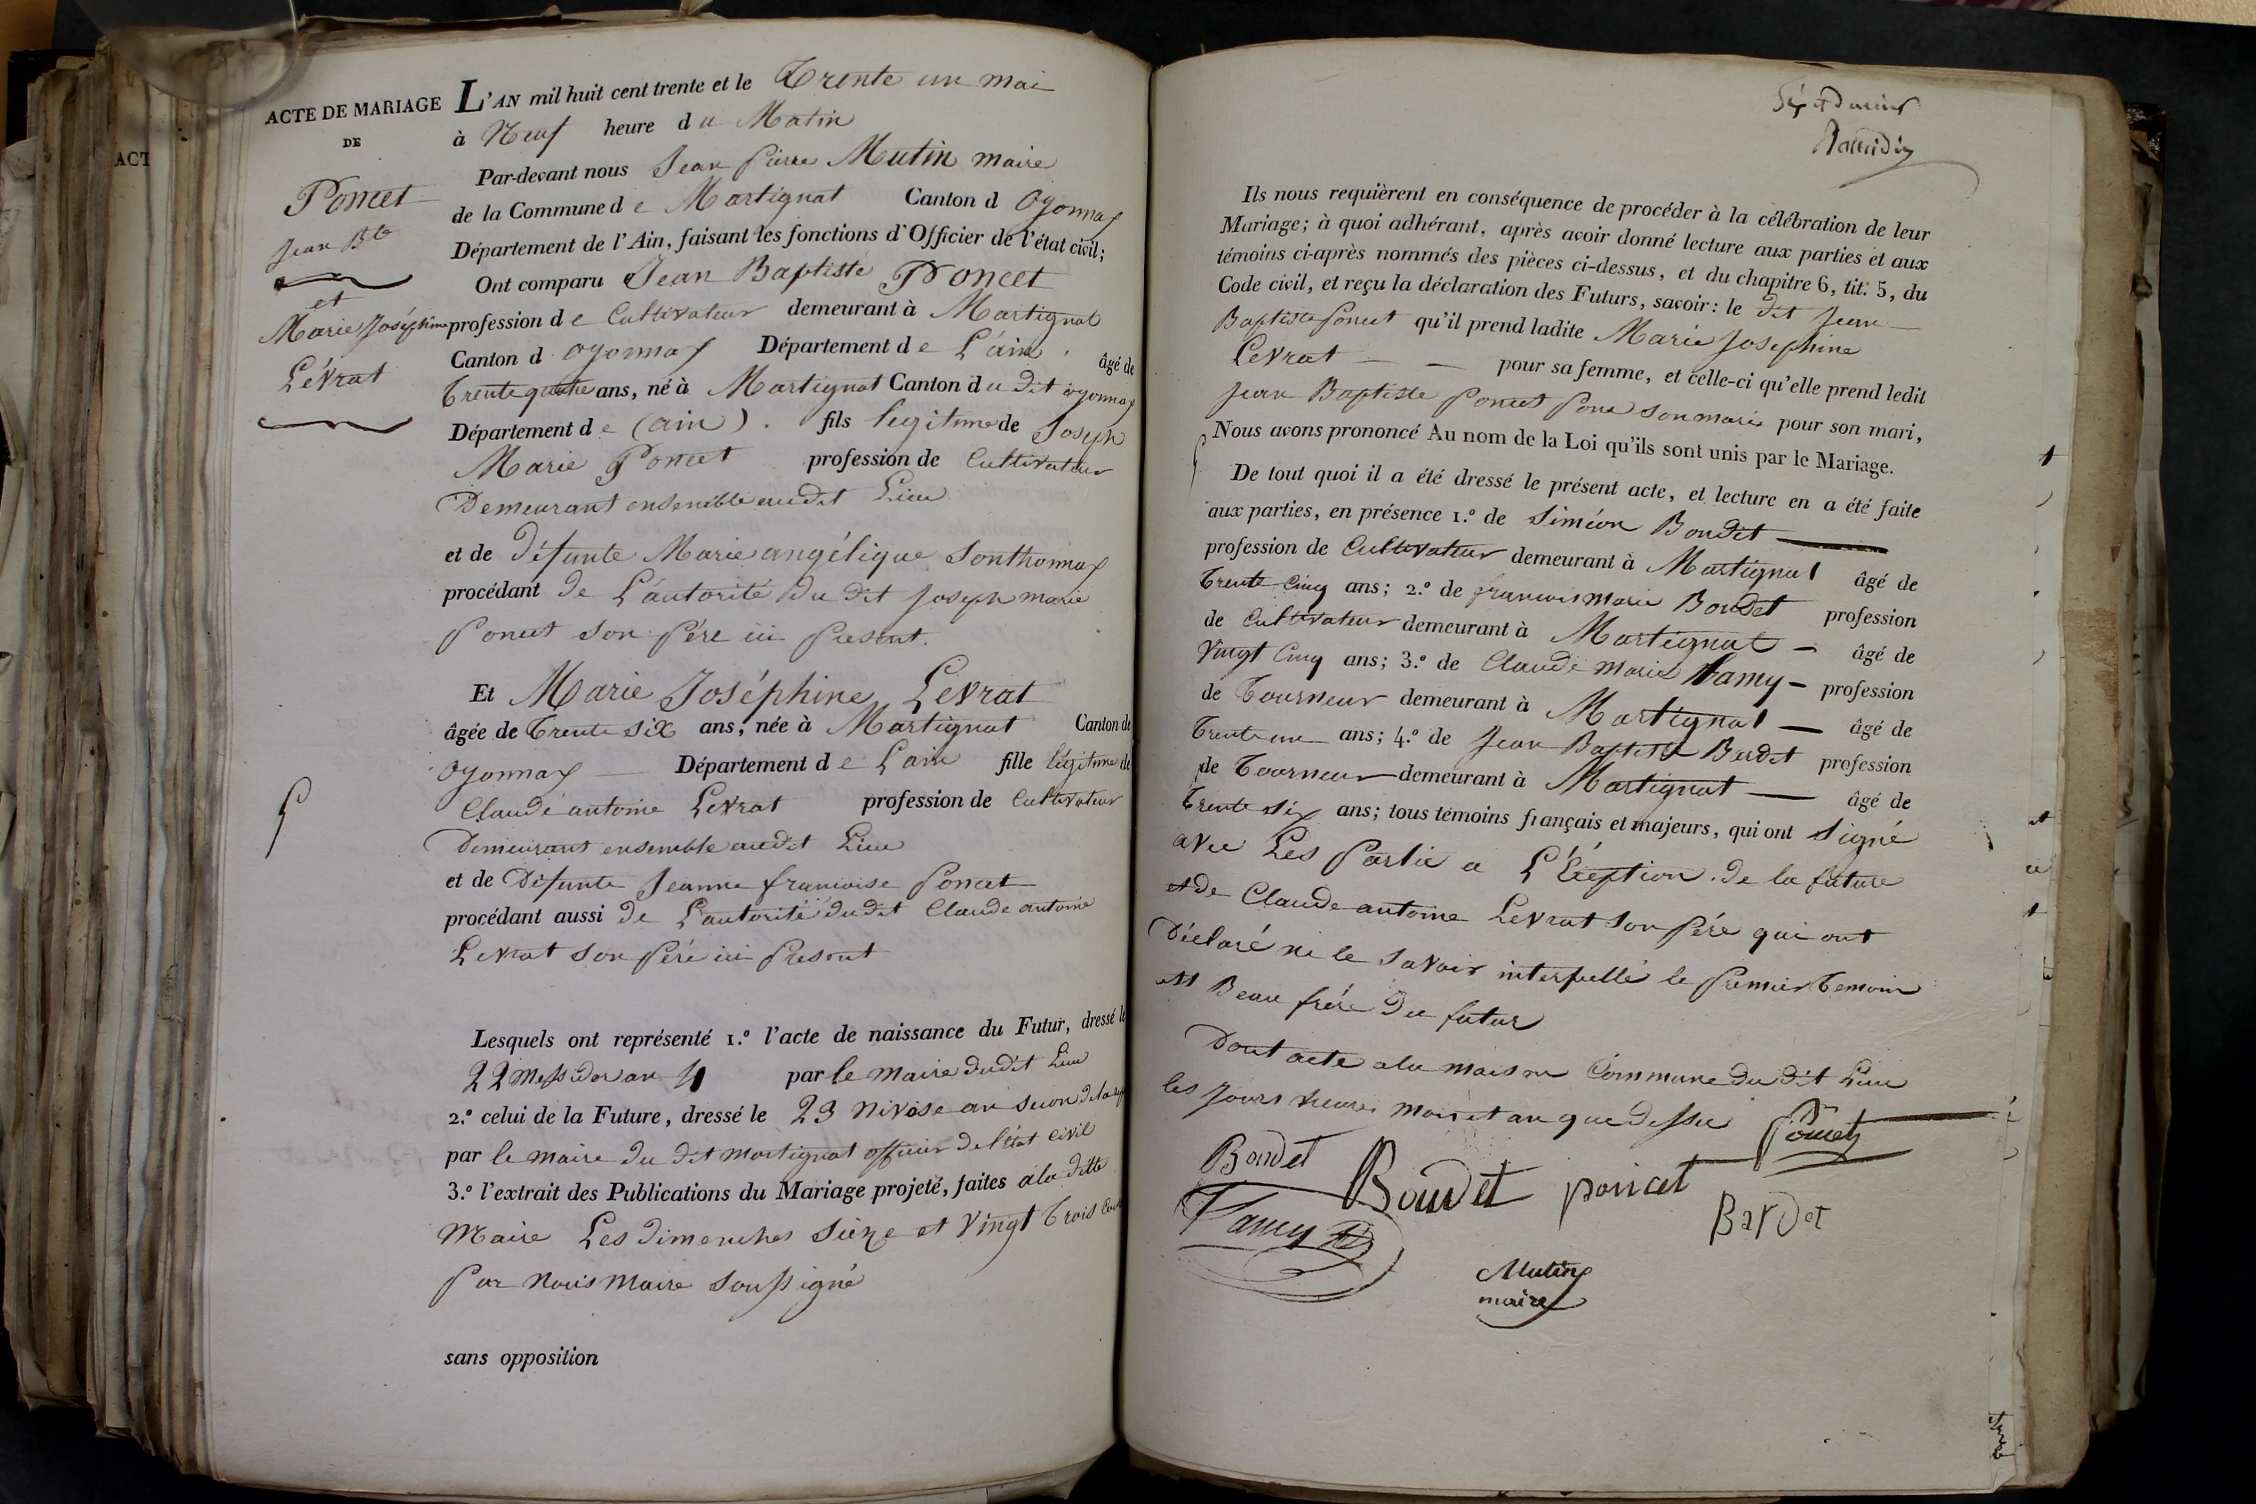 ACT
ACTE DE MARIAGE
DE
Poncet
Jean Bte
et
Marie Joséphine
Lévrat
L'AN mil huit cent trente et le Trente un mai
à Neuf heure du Matin
Par-devant nous Jean Pierre Mutin maire
de la Commune de Martignat Canton d Oyonnax
Département de l'Ain, faisant les fonctions d'Officier de l'état civil;
Ont comparu Jean Baptiste Poncet
profession de Cultivateur demeurant à Martignat
Canton d Oyonnax Département de L'ain . âgé de
Trente quatre ans, né à Martignat Canton du dit oyonnax
Département de (ain) . fils legitime de Joseph
Marie Poncet profession de Cultivateur
Demeurant ensemble audit Lieu
et de Défunte Marie angélique Sonthonnax
procédant de L'autorité du dit Joseph marie
Poncet son Père ici Present.
Et Marie Joséphine Levrat
âgée de Trente six ans, née à Martignat Canton de
Oyonnax Département de Lain fille légitime de
Claude antoine Levrat profession de Cultivateur
Demeurant ensemble audit Lieu
et de Défunte Jeanne francoise Poncet
procédant aussi de L'autorité dudit Claude antoine
Levrat son Péré ici Present
Lesquels ont représenté 1.º l'acte de naissance du Futur, dressé le
22 Messidor an 4 par le maire dudit Lieu
2.º celui de la Future, dressé le 23 Nivôse an
par le maire du dit Martignat officier de l'état civil
3.º l'extrait des Publications du Mariage projeté, faites a la ditte
Maire Les dimenches Sieze et Vingt Trois
Par Nous Maire Soussigné
sans opposition
Ils nous requièrent en conséquence de procéder à la célébration de leur
Mariage; à quoi adhérant, après avoir donné lecture aux parties et aux
témoins ci-après nommés des pièces ci-dessus, et du chapitre 6, tit. 5, du
Code civil, et reçu la déclaration des Futurs, savoir: le dit Jean
Baptiste Poncet qu'il prend ladite Marie Josephine
Levrat pour sa femme, et celle-ci qu'elle prend ledit
Jean Baptiste Poncet Pour son mari pour son mari,
Nous avons prononcé Au nom de la Loi qu'ils sont unis par le Mariage.
De tout quoi il a été dressé le présent acte, et lecture en a été faite
aux parties, en présence 1.º de Siméon Boudet
profession de Cultivateur demeurant à Martignat âgé de
Trente Cinq ans; 2.º de francois Marie Boudet profession
de Cultivateur demeurant à Martignat âgé de
Vingt Cinq ans; 3.º de Claude Marie Vamy profession
de Tourneur demeurant à Martignat âgé de
Trente un ans; 4.º de Jean Baptiste Berdet profession
de Tourneur demeurant à Martignat âgé de
Trente Six ans; tous témoins français et majeurs, qui ont Signé
avec Les Partie a L'Exéption de la future
et de Claude antoine Levrat son Péré qui ont
Déclaré ne le savoir interpellé le Premier Temoin
est Beau frére du futur
Dont acte a la maison Commune du dit Lieu
les Jours heures mois et an que dessu
Poncet
Boudet
Boudet
poncet
Vamy
Bardet
Mutin
maire